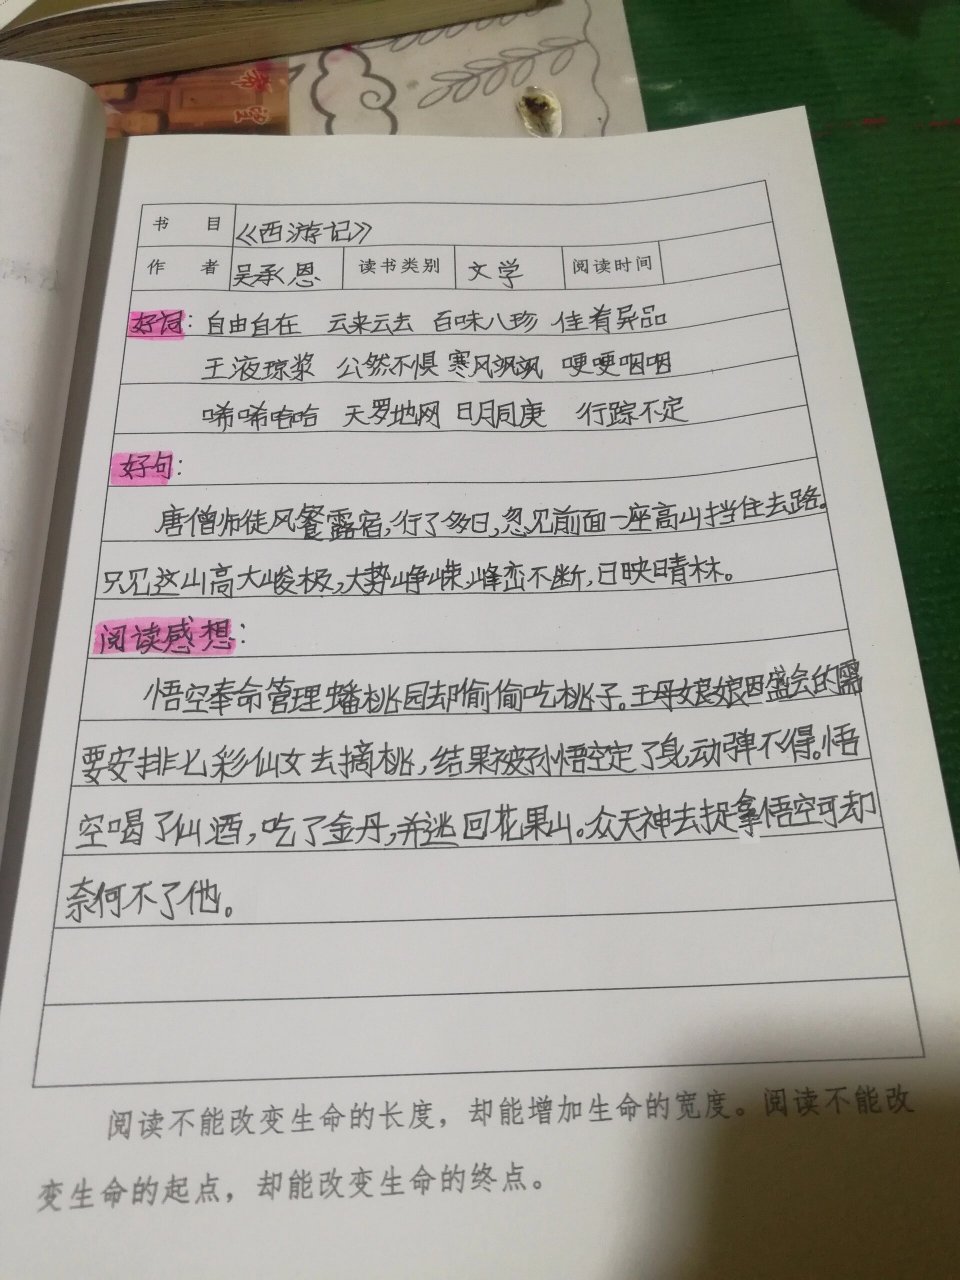 希望
书 目 《西游记》
作 者 吴承恩 读书类别 文学 阅读时间
好词：自由自在 云来云去 百味八珍 佳肴异品
王液琼浆 公然不惧 寒风飒飒 哽哽咽咽
唏唏哈哈 天罗地网 日月同庚 行踪不定
好句：
唐僧师徒风餐露宿，行了多日，忽见前面一座高山挡住去路。
只见这山高大峻极，大势峥嵘，峰峦不断，日映晴林。
阅读感想：
悟空奉命管理蟠桃园却偷偷吃桃子。王母娘娘因盛会的需
要安排七彩仙女去摘桃，结果被孙悟空定了身，动弹不得。悟
空喝了仙酒，吃了金丹，并逃回花果山。众天神去捉拿悟空可却
奈何不了他。
阅读不能改变生命的长度，却能增加生命的宽度。阅读不能改
变生命的起点，却能改变生命的终点。